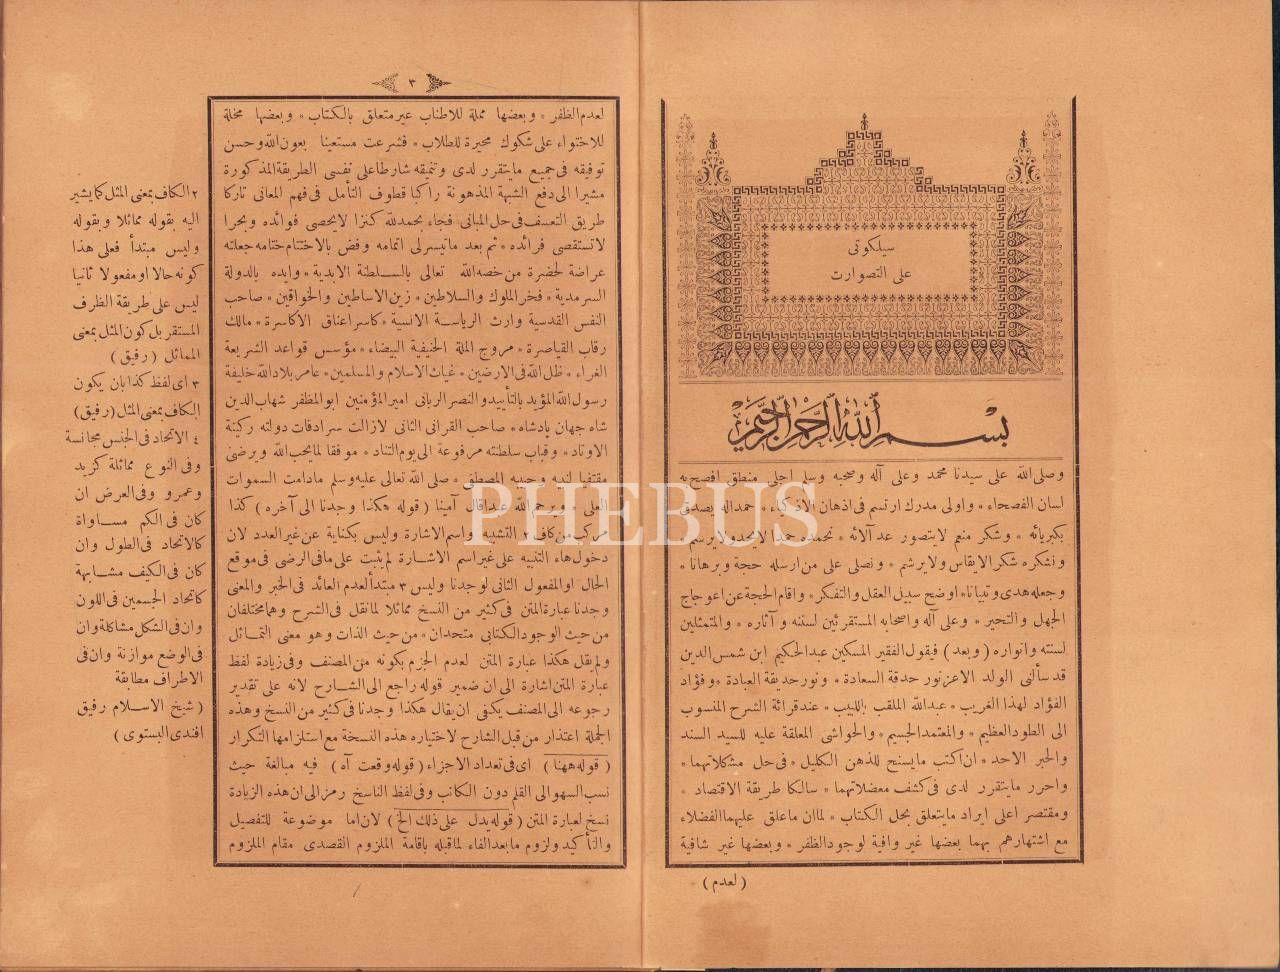 سيلكوتى
على التصورات
بسم الله الرحمن الرحيم
وصلى الله على سيدنا محمد وعلى آله وصحبه وسلم اجلى منطق افصح به
لسان الفصحاء * واولى مدرك ارتسم فى اذهان الاذكياء * حمداله يصدق
بكبريائه * وشكر منعم لايتصور عد آلائه * نحمده حمدا لايحد ولايرسم *
ونشكره شكر الايقاس ولايرشم * ونصلى على من ارسله حجة وبرهانا *
وجعله هدى وتبيانا * اوضح سبيل العقل والتفكر * واقام الحجة عن اعوجاج
الجهل والتحير * وعلى آله واصحابه المستقرئين لسننه وآثاره * والمتمثلين
لسنته وانواره ( وبعد ) فيقول الفقير المسكين عبد الحكيم ابن شمس الدين
قد سألنى الولد الاعز نور حدقة السعادة * ونور حديقة العبادة * وفؤاد
الفؤاد لهذا الغريب * عبدالله الملقب باللبيب * عند قرائة الشرح المنسوب
الى الطود العظيم * والمعتمد الجسيم * والحواشى المعلقة عليه للسيد السند
والحبر الاحد * ان اكتب مايسنح للذهن الكليل * فى حل مشكلاتهما *
واحرر مايتقرر لدى فى كشف معضلاتهما * سالكا طريقة الاقتصاد *
ومقتصر اعلى ايراد مايتعلق بحل الكتاب * لماان ماعلق عليهما الفضلاء
مع اشتهارهم بهما بعضها غير وافية لوجود الظفر * وبعضها غير شافية
( لعدم )
٣
لعدم الظفر * وبعضها مملة للاطناب غير متعلق بالكتاب * وبعضها مخلة
للاحتواء على شكوك محيرة للطلاب * فشرعت مستعينا بعون الله وحسن
توفيقه فى جميع مايتقرر لدى وتنميقه شارطا على نفسى الطريقة المذكورة
مشيرا الى دفع الشبهة المذهونة راكبا قطوف التأمل فى فهم المعانى تاركا
طريق التعسف فى حل المبانى فجاء بحمدلله كنزا لايحصى فوائده وبحرا
لاتستقصى فرائده * ثم بعد ماتيسرلى اتمامه وفض بالاختتام ختامه جعلته
عراضة لحضرة من خصه الله تعالى بالسلطنة الابدية * وايده بالدولة
السرمدية * فخر الملوك والسلاطين * زين الاساطين والخواقين * صاحب
النفس القدسية وارث الرياسة الانسية * كاسر اعناق الاكاسرة * مالك
رقاب القياصرة * مروج الملة الحنيفية البيضاء * مؤسس قواعد الشريعة
الغراء * ظل الله فى الارضين * غياث الاسلام والمسلمين * عامر بلاد الله خليفة
رسول الله المؤيد بالتأييد والنصر الربانى امير المؤمنين ابو المظفر شهاب الدين
شاه جهان پادشاه * صاحب القرانى الثانى لازالت سرادقات دولته ركينة
الاوتاد * وقباب سلطنته مرفوعة الى يوم التناد * موفقا لما يحب الله ويرضى
مقتفيا لنبيه وحبيبه المصطفى * صلى الله تعالى عليه وسلم مادامت السموات
العلى * ويرحم الله عبدا قال آمينا ( قوله هكذا وجدنا الى آخره ) كذا
مركب من كاف ٢ التشبيه واسم الاشارة وليس بكناية عن غير العدد لان
دخول هاء التنبيه على غير اسم الاشارة لم يثبت على مافى الرضى فى موقع
الحال او المفعول الثانى لوجدنا وليس ٣ مبتدأ لعدم العائد فى الخبر والمعنى
وجدنا عبارة المتن فى كثير من النسخ مماثلا لما نقل فى الشرح وهما مختلفان
من حيث الوجود الكتابى متحدان * من حيث الذات وهو معنى التماثل
ولم يقل هكذا عبارة المتن لعدم الجزم بكونه من المصنف وفى زيادة لفظ
عبارة المتن اشارة الى ان ضمير قوله راجع الى الشارح لانه على تقدير
رجوعه الى المصنف يكفى ان يقال هكذا وجدنا فى كثير من النسخ وهذه
الجملة اعتذار من قبل الشارح لاختياره هذه النسخة مع استلزامها التكرار
( قوله ههنا ) اى فى تعداد الاجزاء ( قوله وقعت آه ) فيه مبالغة حيث
نسب السهو الى القلم دون الكاتب وفى لفظ الناسخ رمز الى ان هذه الزيادة
نسخ لعبارة المتن ( قوله يدل على ذلك الخ ) لان اما موضوعة للتفصيل
والتأكيد ولزوم مابعد الفاء لماقبله باقامة الملزوم القصدى مقام الملزوم
٢ الكاف بمعنى المثل كمايشير
اليه بقوله مماثلا وبقوله
وليس مبتدأ فعلى هذا
كونه حالا او مفعولا ثانيا
ليس على طريقة الظرف
المستقر بل كون المثل بمعنى
المماثل ( رفيق )
٣ اى لفظ كذا بان يكون
الكاف بمعنى المثل ( رفيق )
٤ الاتحاد فى الجنس مجانسة
وفى النوع مماثلة كزيد
وعمرو وفى العرض ان
كان فى الكم مساواة
كالاتحاد فى الطول وان
كان فى الكيف مشابهة
كاتحاد الجسمين فى اللون
وان فى الشكل مشاكلة وان
فى الوضع موازنة وان فى
الاطراف مطابقة
( شيخ الاسلام رفيق
افندى البستوى )
PHEBUS